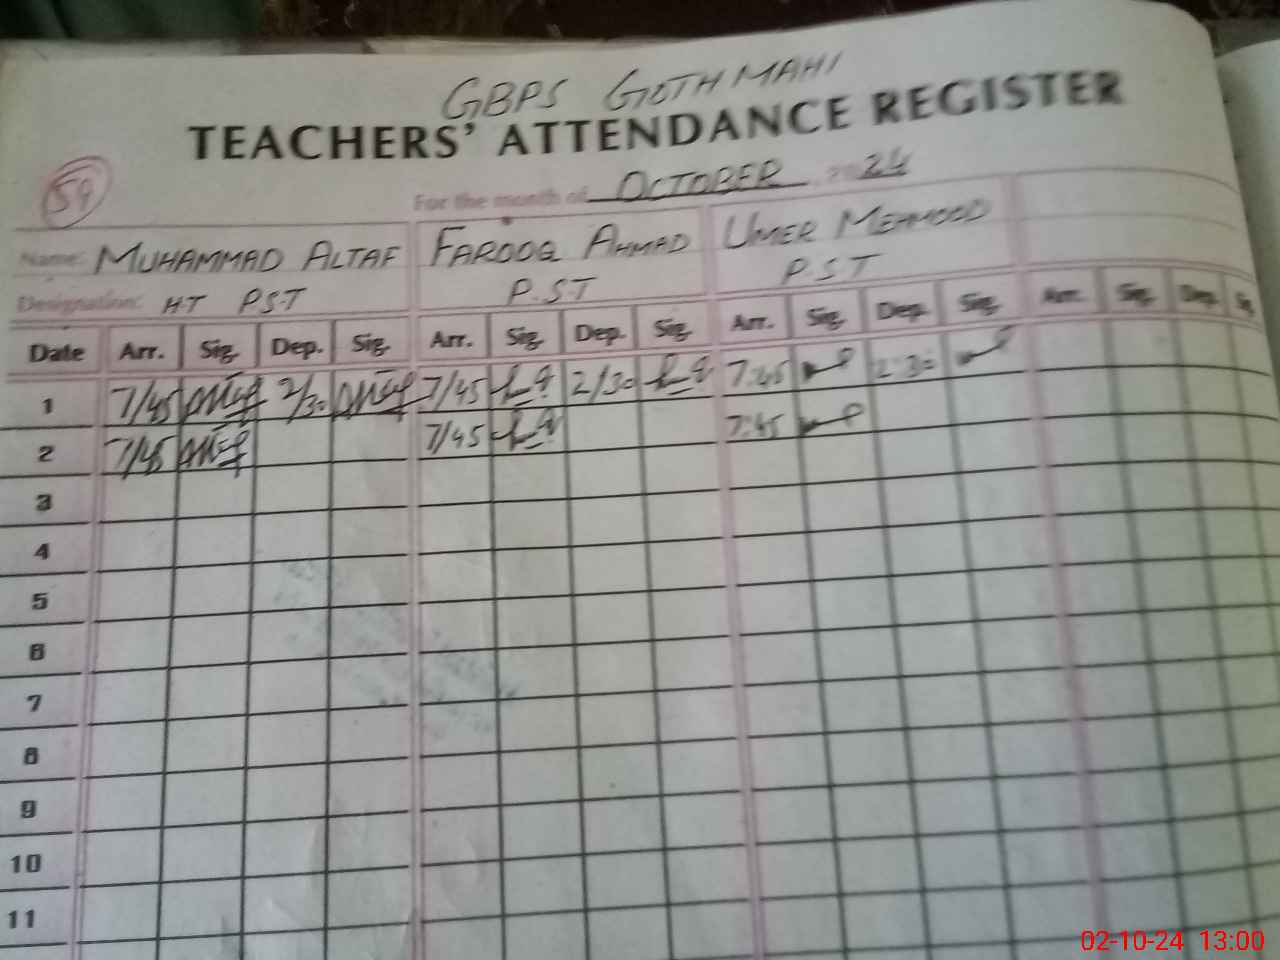 GBPS GOTH MAHI
TEACHERS' ATTENDANCE REGISTER
59
For the month of OCTOBER 2024
Name: MUHAMMAD ALTAF FAROOQ AHMAD UMER MEHMOOD
Designation: HT PST P.S.T P.S.T
Date Arr. Sig. Dep. Sig. Arr. Sig. Dep. Sig. Arr. Sig. Dep. Sig. Arr. Sig. Dep. Sig.
1 7/45 2/30 7/45 2/30 7:45 2:30
2 7/45 7/45 7:45
3
4
5
6
7
8
9
10
11
02-10-24 13:00